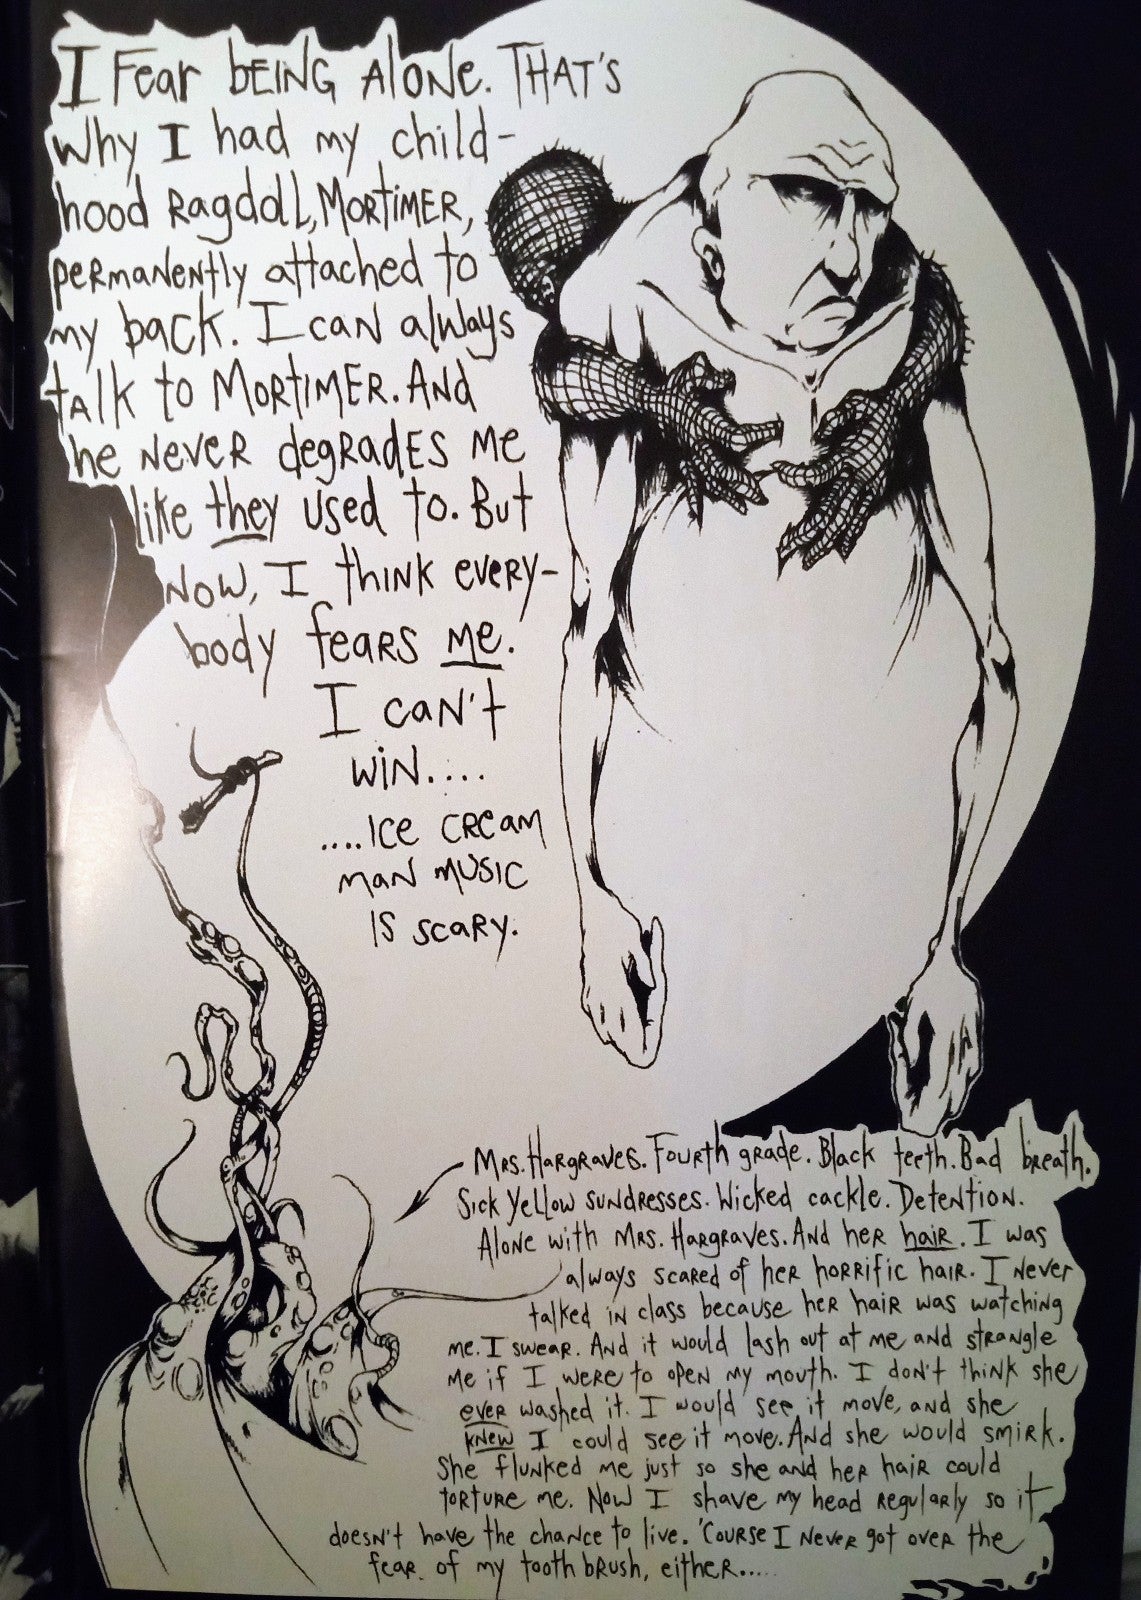 I Fear being Alone. That's
why I had my child-
hood Ragdoll, Mortimer,
permanently attached to
my back. I can always
talk to Mortimer. And
he never degrades me
like they used to. But
now, I think every-
body fears me.
I can't
win....
....Ice cream
man music
is scary.
Mrs. Hargraves. Fourth grade. Black teeth. Bad breath.
Sick yellow sundresses. Wicked cackle. Detention.
Alone with Mrs. Hargraves. And her hair. I was
always scared of her horrific hair. I never
talked in class because her hair was watching
me. I swear. And it would lash out at me and strangle
me if I were to open my mouth. I don't think she
ever washed it. I would see it move, and she
knew I could see it move. And she would smirk.
She flunked me just so she and her hair could
torture me. Now I shave my head regularly so it
doesn't have the chance to live. 'Course I never got over the
fear of my tooth brush, either.....